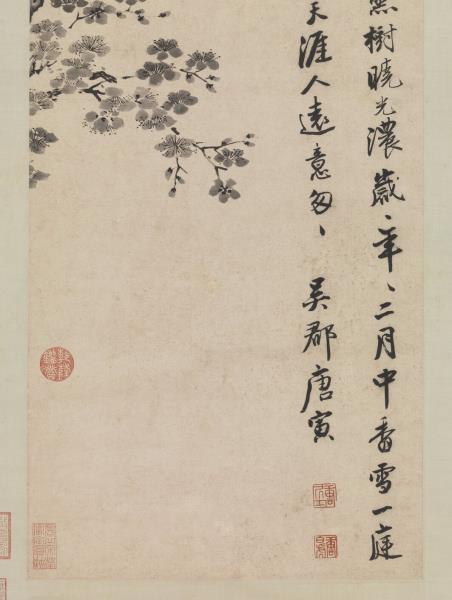 樹曉光濃歲、年、二月中香雪一庭
天涯人遠意匆、 吳郡唐寅
乾隆鑑賞